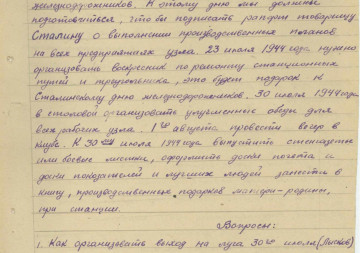 железнодорожников. К этому дню мы должны
подготовиться, что бы подписать рапорт товарищу
Сталину о выполнении производственных планов
на всех предприятиях узла. 23 июля 1944 года нужно
организовать воскресник по ремонту станционных
путей и, это будет подарок к
Сталинскому дню железнодорожников. 30 июля 1944 года
в столовой организовать улучшенные обеды для
всех рабочих узла. 1го августа провести вечер в
клубе. К 30му июля 1944 года выпустить стенгазеты
или боевые листки, оформить доски почета и
доски показателей и лучших людей занести в
книгу, производственных подарков матери-родины,
при станции.
Вопросы:
1. Как организовать выход на луга 30го июля